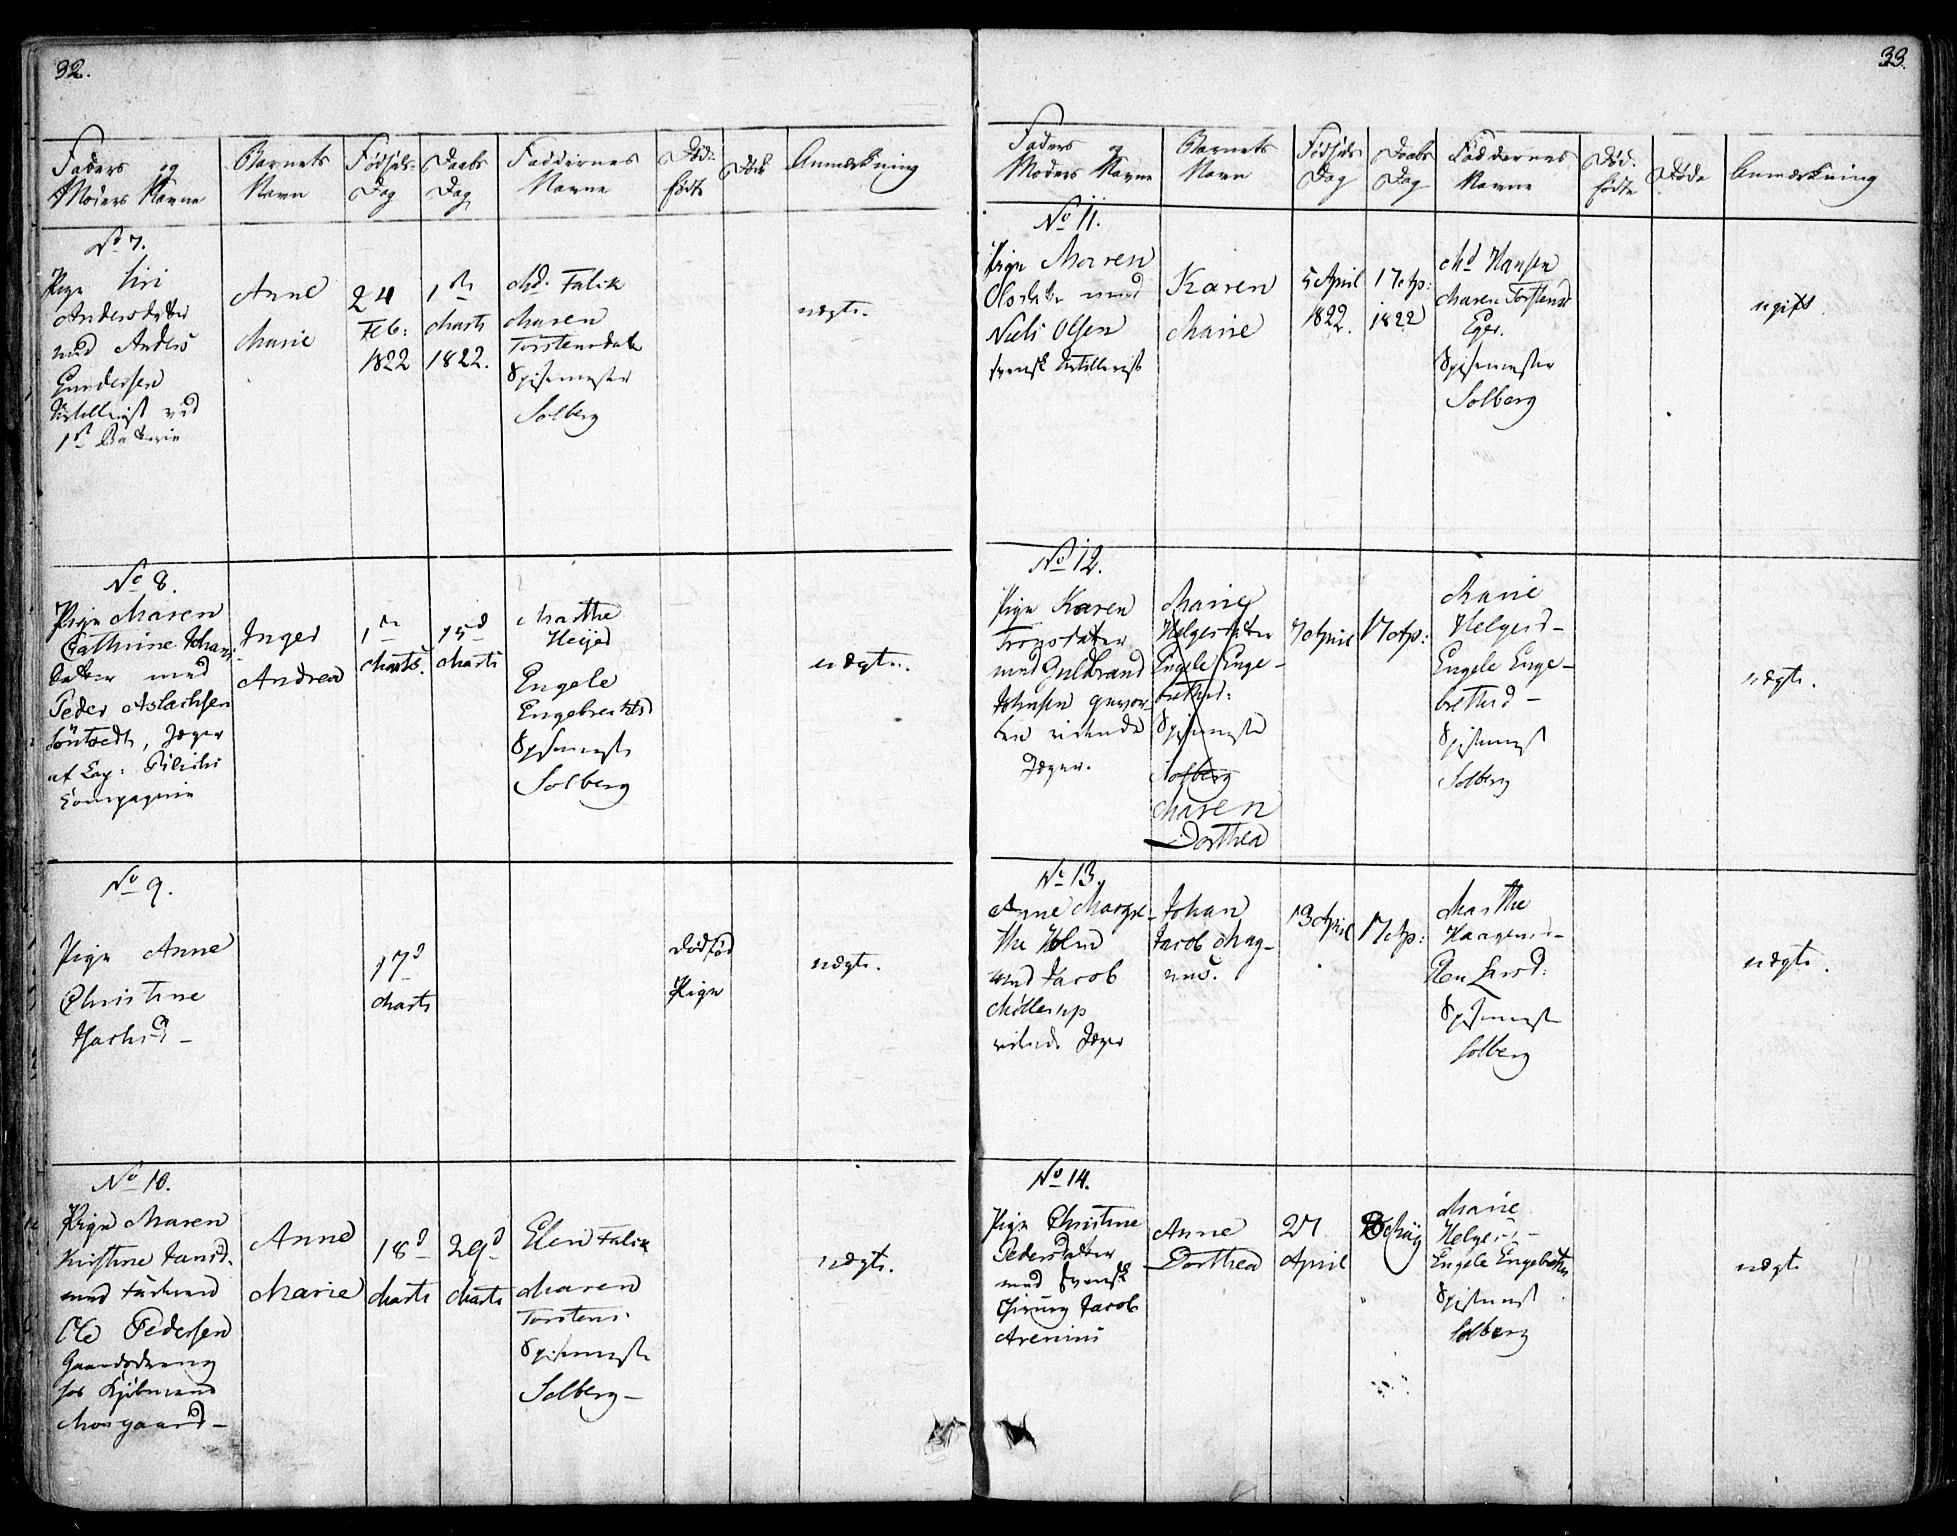 32.
Faders og
Moders Navne
Barnets
Navn
Fødsels-
Dag
Daabs
Dag
Faddernes
Navne
Død-
fødte
Døde
Anmærkning
No 7.
Pige Siri
Andersdatter
med Anders
Gundersen
Artillerist ved
1ste Batterie
Anne
Marie
24
Feb:
1822
1ste
Marts
1822.
Md. Falik
Maren
Torstensdatt
Spisemester
Solberg
uægte.
No 8.
Pige Maren
Cathrine Johans-
datter med
Peder Aslachsen
Jæger
af Cap:
Compagnie
Inger
Andrea
1ste
Marts.
15d
Marts
Marthe
Heijer
Engele
Engebrechtsd
Spisemester
Solberg
uægte.
No 9.
Pige Anne
Christine
17d
Marts
Dødfød
Pige
uægte.
No 10.
Pige Maren
Kristine Jansd.
med
Ole Pedersen
Gaardsdreng
hos Kjøbmand
Morgaard –
Anne
Marie
18d
Marts
29d
Marts
Elen Falik
Maren
Torstens.
Spisemeste
Solberg –
uægte.
33.
Faders og
Moders Navne
Barnets
Navn
Fødsels
Dag
Daabs
Dag
Faddernes
Navne
Død-
fødte
Døde
Anmærkning
No 11.
Pige Maren
Olsdatter med
Niels Olsen
svensk Artillerist
Karen
Marie
5 April
1822.
17 Ap:
1822
Md Hansen
Maren Torstensd
Eger.
Spisemester
Solberg
ugift.
No 12.
Pige Karen
med Guldbrand
Johnsen gevor-
ben ridende
Jæger.
Marie
Helgesdatter
Engele Enge-
brethsd:
Spisemeste
Solberg
Maren
Dorthea
7 April
17 Ap:
Marie
Helgesd –
Engele Enge-
brettsd –
Spisemest
Solberg
uægte.
No 13.
Anne Margre-
the Holm
med Jacob
Møllerup
ridende Jæger
Johan
Jacob Mag-
nus.
13 April
17 Ap:
Marthe
Haagensd –
Elen Larsd:
Spisemeste
Solberg
uægte.
No 14.
Pige Christine
Pedersdatter
med svensk
Chirurg Jacob
Arenius
Anne
Dorthea
27
April
Maij
Marie
Helgesd –
Engele Engebretsd
Spisemest
Solberg
uægte